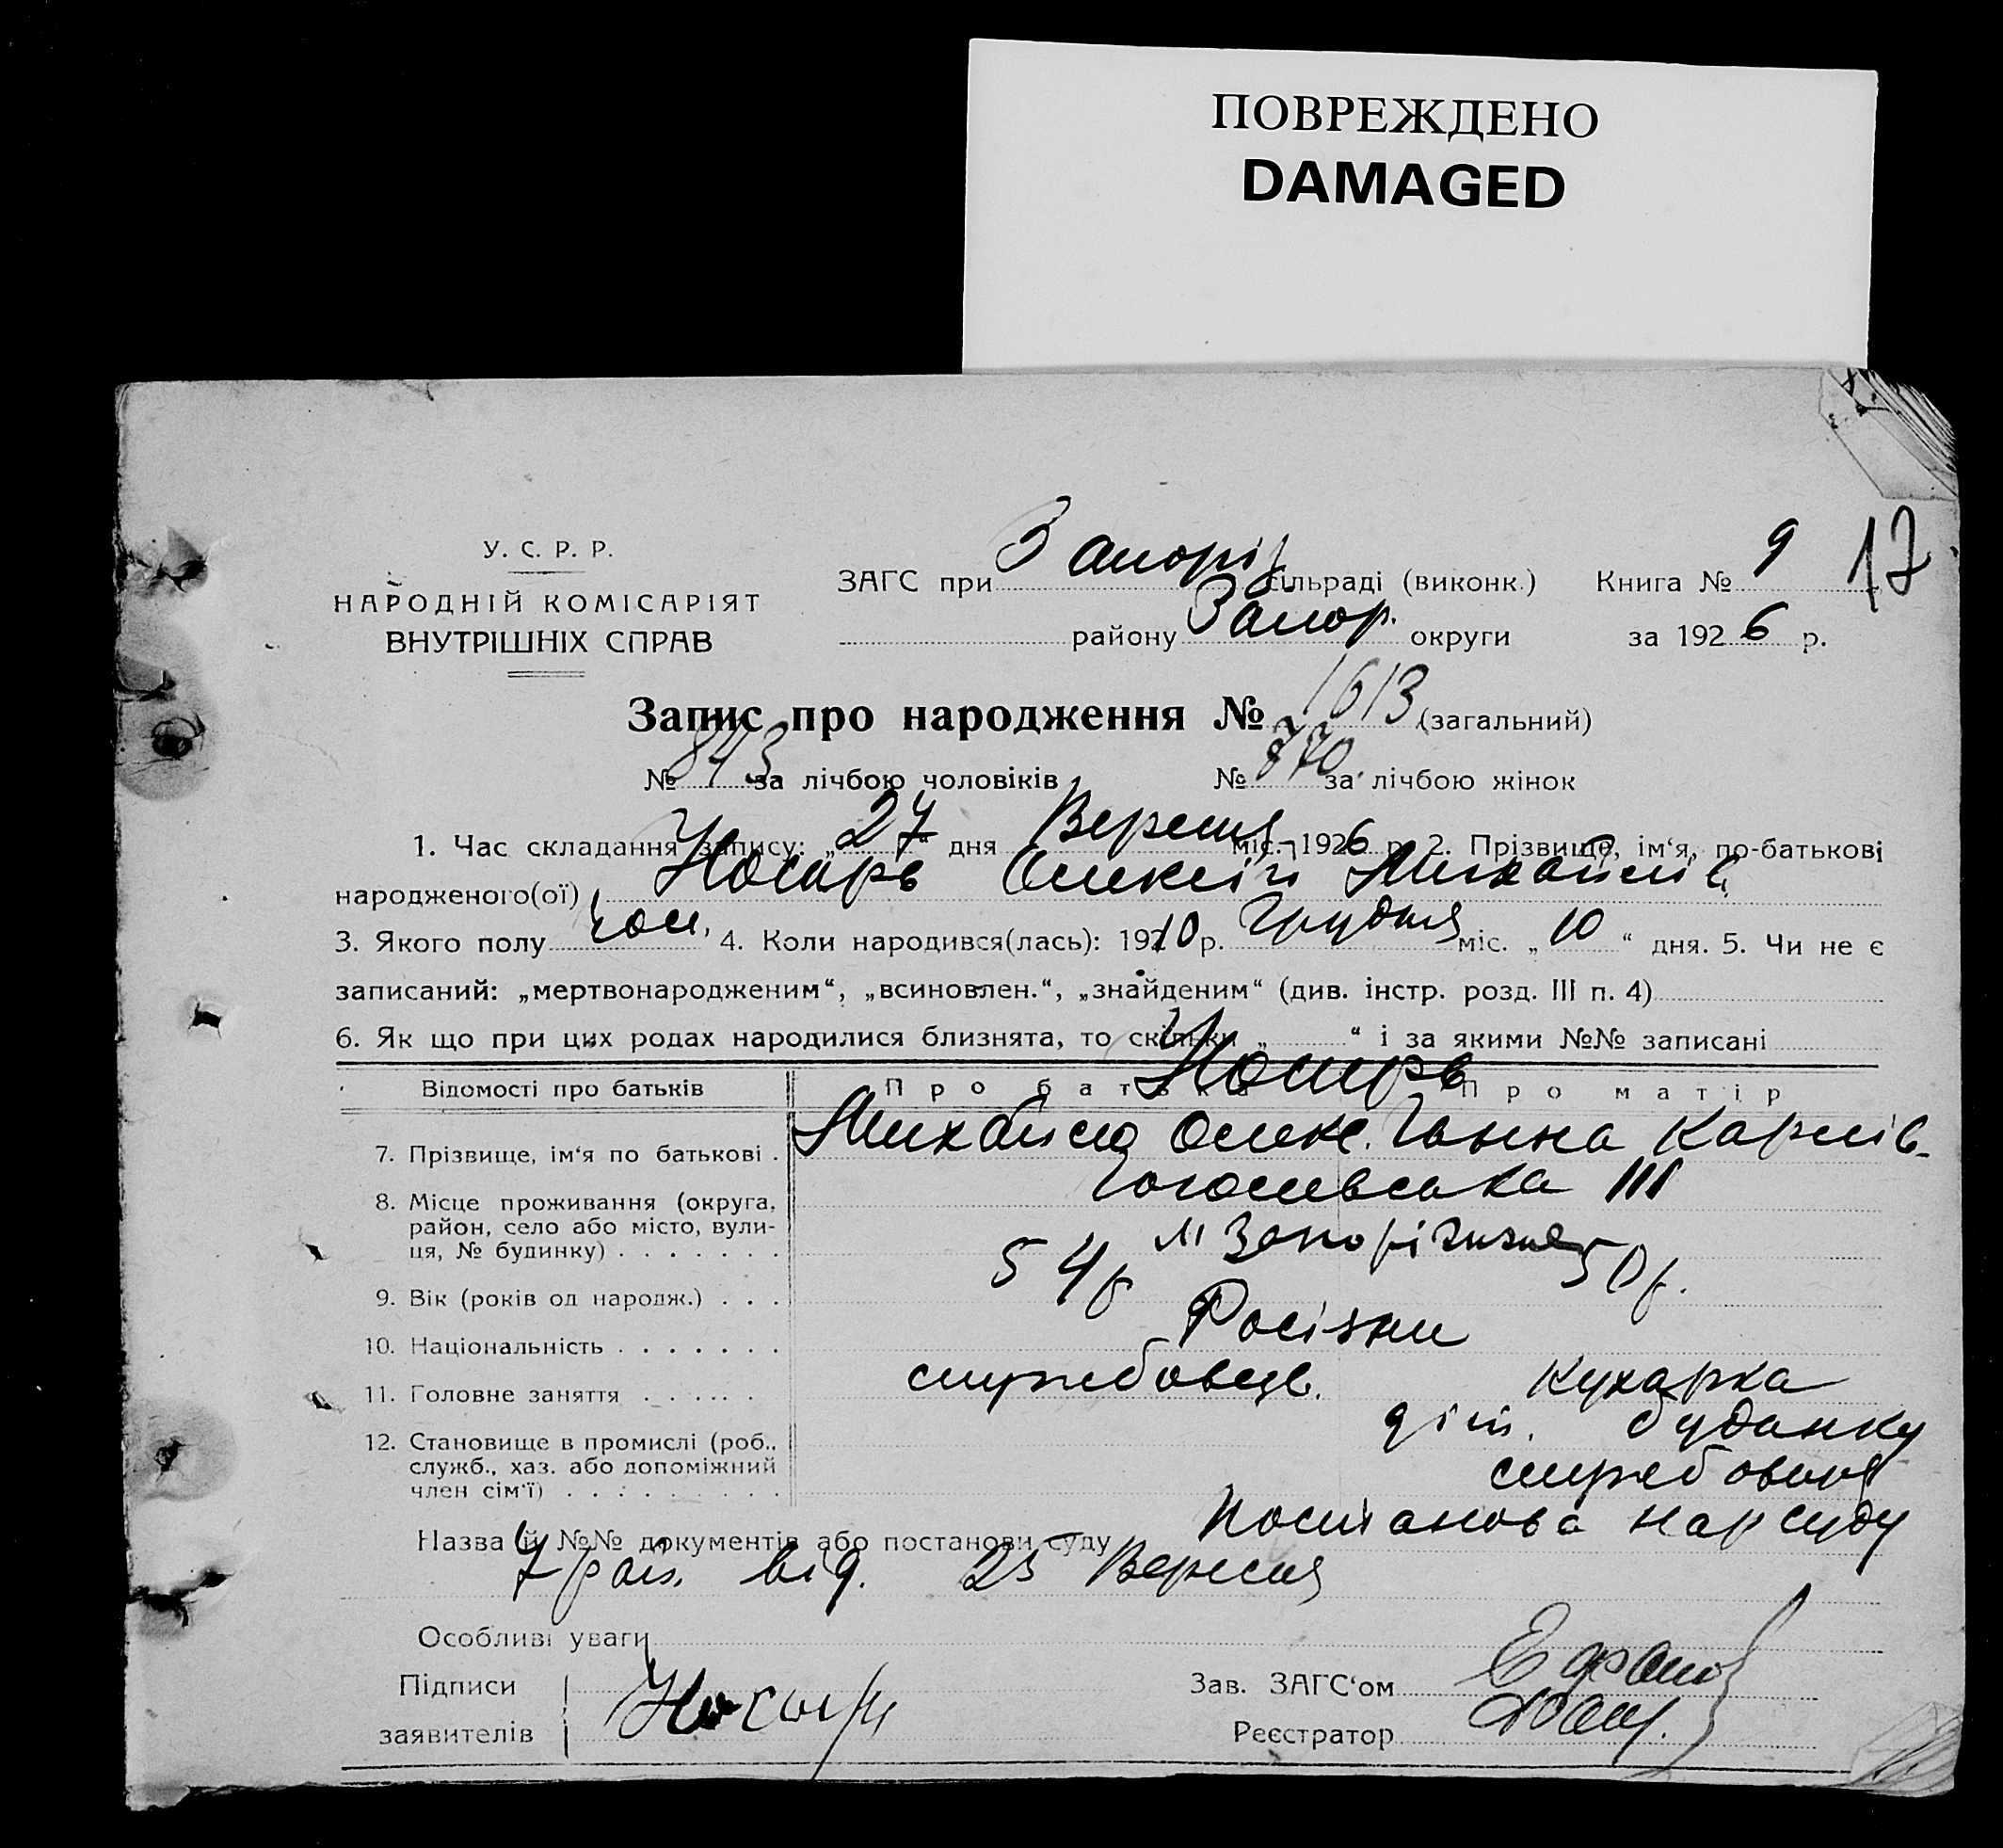 ПОВРЕЖДЕНО
DAMAGED
У. С. Р. Р.
НАРОДНІЙ КОМІСАРІЯТ
ВНУТРІШНІХ СПРАВ
ЗАГС при Запоріз сільраді (виконк.) Книга № 9 17
району Запор. округи за 1926 р.
Запис про народження № 1613 (загальний)
№ 843 за лічбою чоловіків № 770 за лічбою жінок
1. Час складання запису: „27“ дня Вересня міс. 1926 р. 2. Прізвище, ім‘я, по-батькові
народженого(ої) Носирь Олексій Михайлів
3. Якого полу чол. 4. Коли народився(лась): 1910 р. Грудня міс. „10“ дня. 5. Чи не є
записаний: „мертвонародженим“, „всиновлен.“, „знайденим“ (див. інстр. розд. III п. 4)
6. Як що при цих родах народилися близнята, то скільки „ “ і за якими №№ записані
Носирь
Відомості про батьків Про батька Про матір
7. Прізвище, ім‘я по батькові . Михайло Олекс. Ганна Карпів-
8. Місце проживання (округа, район, село або місто, вулиця, № будинку) . . . . . . . Гоголівська 111
м Запоріжжя
9. Вік (років од народж.) . . . 54 р 50 р.
10. Національність . . . . . . . Росіяни
11. Головне заняття . . . . . . службовець. Кухарка
діт. будинку
12. Становище в промислі (роб., служб., хаз. або допоміжний член сім‘ї) . . . . . . . . . службовиця
Назва й №№ документів або постанови суду Постанова Нарсуду
7 рай. від. 23 Вересня
Особливі уваги
Підписи заявителів Носирь
Зав. ЗАГС‘ом
Реєстратор